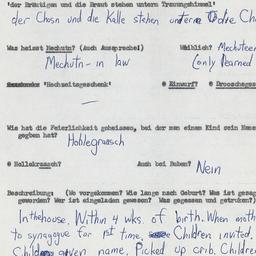 'der Bräutigam und die Braut stehen unterm Traungshimmel'
der Chosn und die Kalle stehen unterm die Ch
Was heisst Mechutn? (Auch Aussprache!) Weiblich? Mechuteen
Mechutn - in law (only learned
'Hochzeitsgeschenk' @ Einwurf? @ Drooschegesch
—
Wie hat die Feierlichkeit geheissen, bei der man einem Kind sein Name
gegeben hat?
Hohlegraasch
@ Hollekraasch? Auch bei Buben? Nein
Beschreibung: (Wo vorgekommen? Wie lange nach Geburt? Was ist gesag
geworden? Wer ist eingeladen gewesen? Was gegessen und getruken?)
In the house. Within 4 wks. of birth. When moth
to synagogue for 1st time, Children invited,
Child given name. Picked up crib. Childre